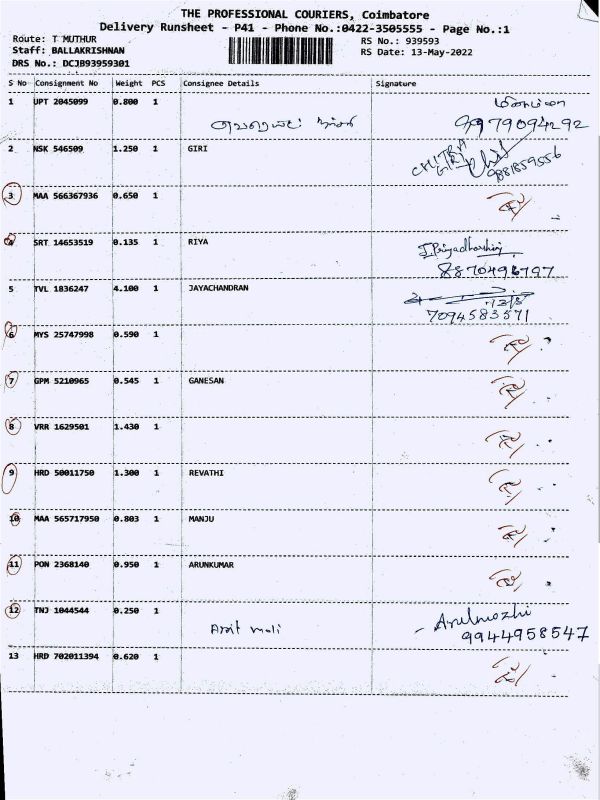 THE PROFESSIONAL COURIERS, Coimbatore
Delivery Runsheet - P41 - Phone No.:0422-3505555 - Page No.:1
Route: T MUTHUR
RS No.: 939593
Staff: BALLAKRISHNAN
RS Date: 13-May-2022
DRS No.: DCJB93959301
S No Consignment No Weight PCS Consignee Details Signature
1 UPT 2045099 0.800 1
9979094292
2 NSK 546509 1.250 1 GIRI
CHITRA
GIRI
9881859556
3 MAA 566367936 0.650 1
4 SRT 14653519 0.135 1 RIYA
J. Priyadharshini
8870496797
5 TVL 1836247 4.100 1 JAYACHANDRAN
13/5
7094583571
6 MYS 25747998 0.590 1
7 GPM 5210965 0.545 1 GANESAN
8 VRR 1629501 1.430 1
9 HRD 50011750 1.300 1 REVATHI
10 MAA 565717950 0.803 1 MANJU
11 PON 2368140 0.950 1 ARUNKUMAR
12 TNJ 1044544 0.250 1
Arulmozhi
9944958547
13 HRD 702011394 0.620 1